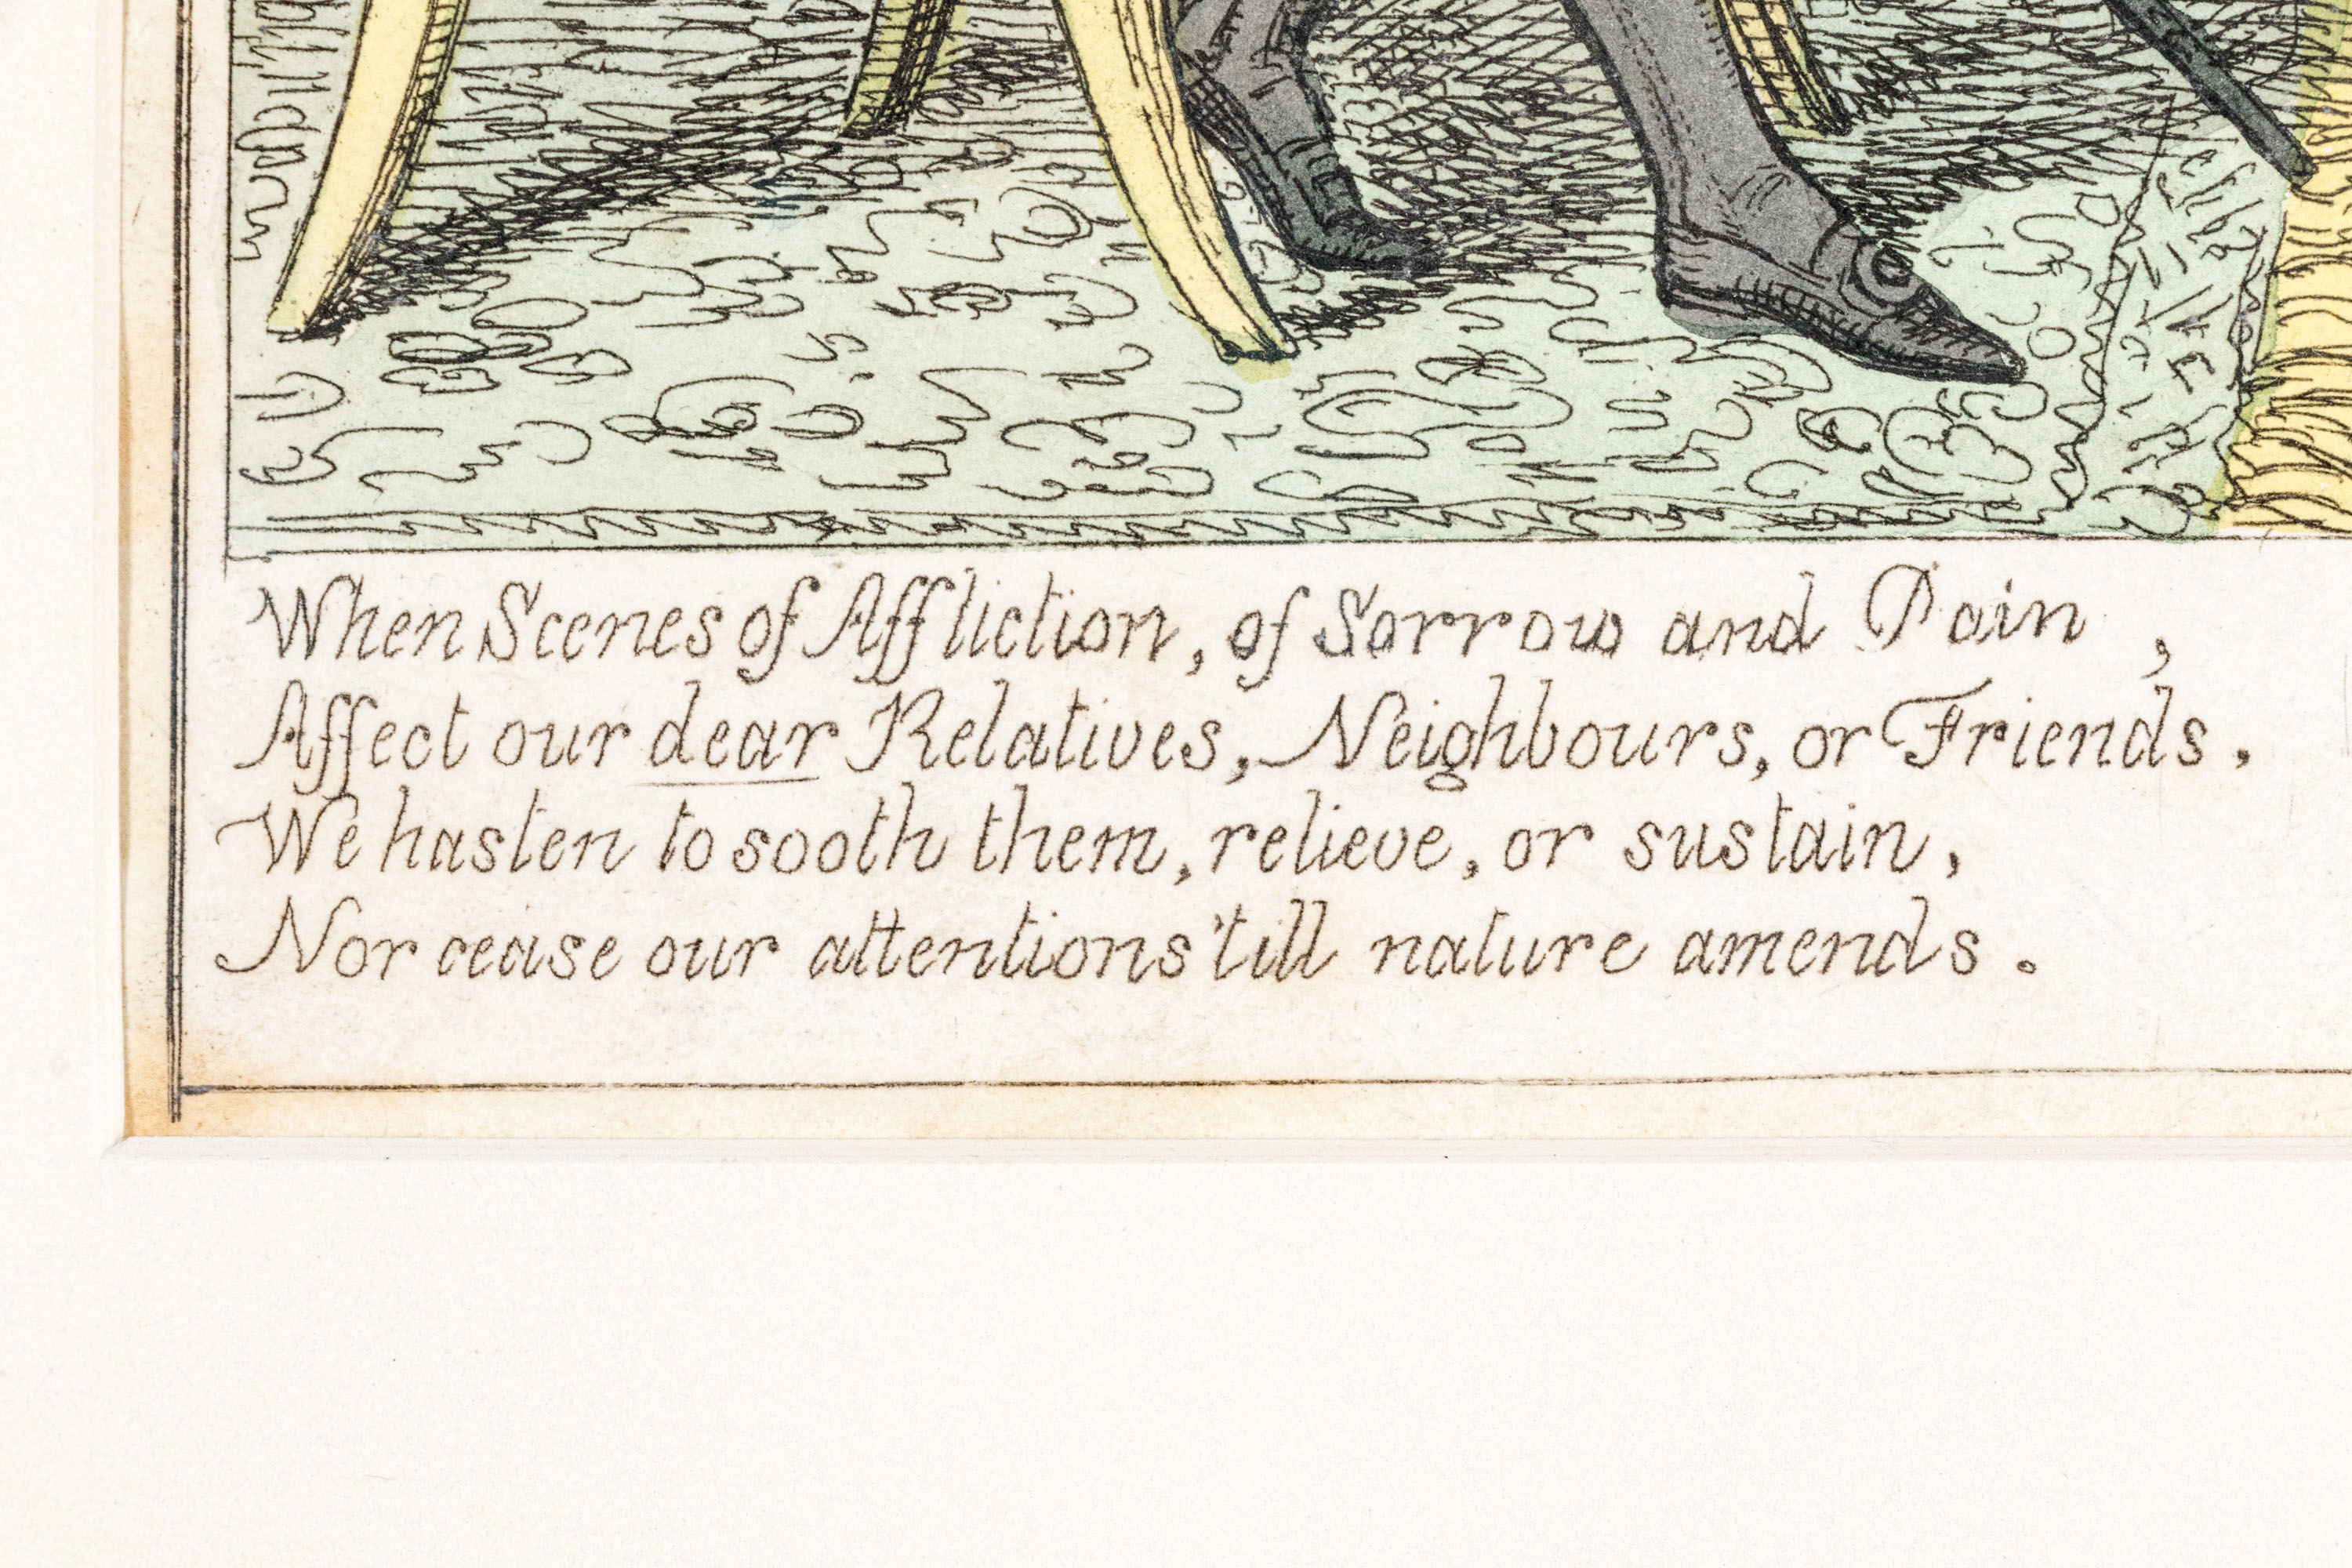 When Scenes of Affliction, of Sorrow and Pain,
Affect our dear Relatives, Neighbours, or Friends.
We hasten to sooth them, relieve, or sustain,
Nor cease our attentions 'till nature amends.